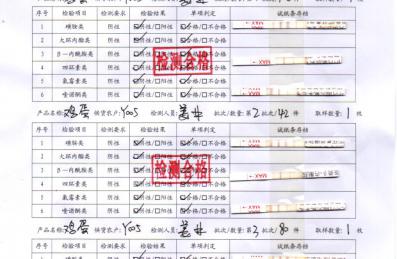 序号 检验项目 检测要求 检验结果 单项判定 试纸条存档
1 磺胺类 阴性 ☑阴性/□阳性 ☑合格/□不合格
2 大环内酯类 阴性 ☑阴性/□阳性 ☑合格/□不合格
3 β－内酰胺类 阴性 ☑阴性/□阳性 ☑合格/□不合格
4 四环素类 阴性 ☑阴性/□阳性 ☑合格/□不合格
5 氨霉素类 阴性 ☑阴性/□阳性 ☑合格/□不合格
6 喹诺酮类 阴性 ☑阴性/□阳性 ☑合格/□不合格
检测合格
MAX
产品名称:鸡蛋 供货农户:Y005 检测人员: 批次/数量:第2批次/42件 取样数量:1枚
序号 检验项目 检测要求 检验结果 单项判定 试纸条存档
1 磺胺类 阴性 ☑阴性/□阳性 ☑合格/□不合格
2 大环内酯类 阴性 ☑阴性/□阳性 ☑合格/□不合格
3 β－内酰胺类 阴性 ☑阴性/□阳性 ☑合格/□不合格
4 四环素类 阴性 ☑阴性/□阳性 ☑合格/□不合格
5 氨霉素类 阴性 ☑阴性/□阳性 ☑合格/□不合格
6 喹诺酮类 阴性 ☑阴性/□阳性 ☑合格/□不合格
检测合格
MAX
产品名称:鸡蛋 供货农户:Y005 检测人员: 批次/数量:第3批次/80件 取样数量:1枚
序号 检验项目 检测要求 检验结果 单项判定 试纸条存档